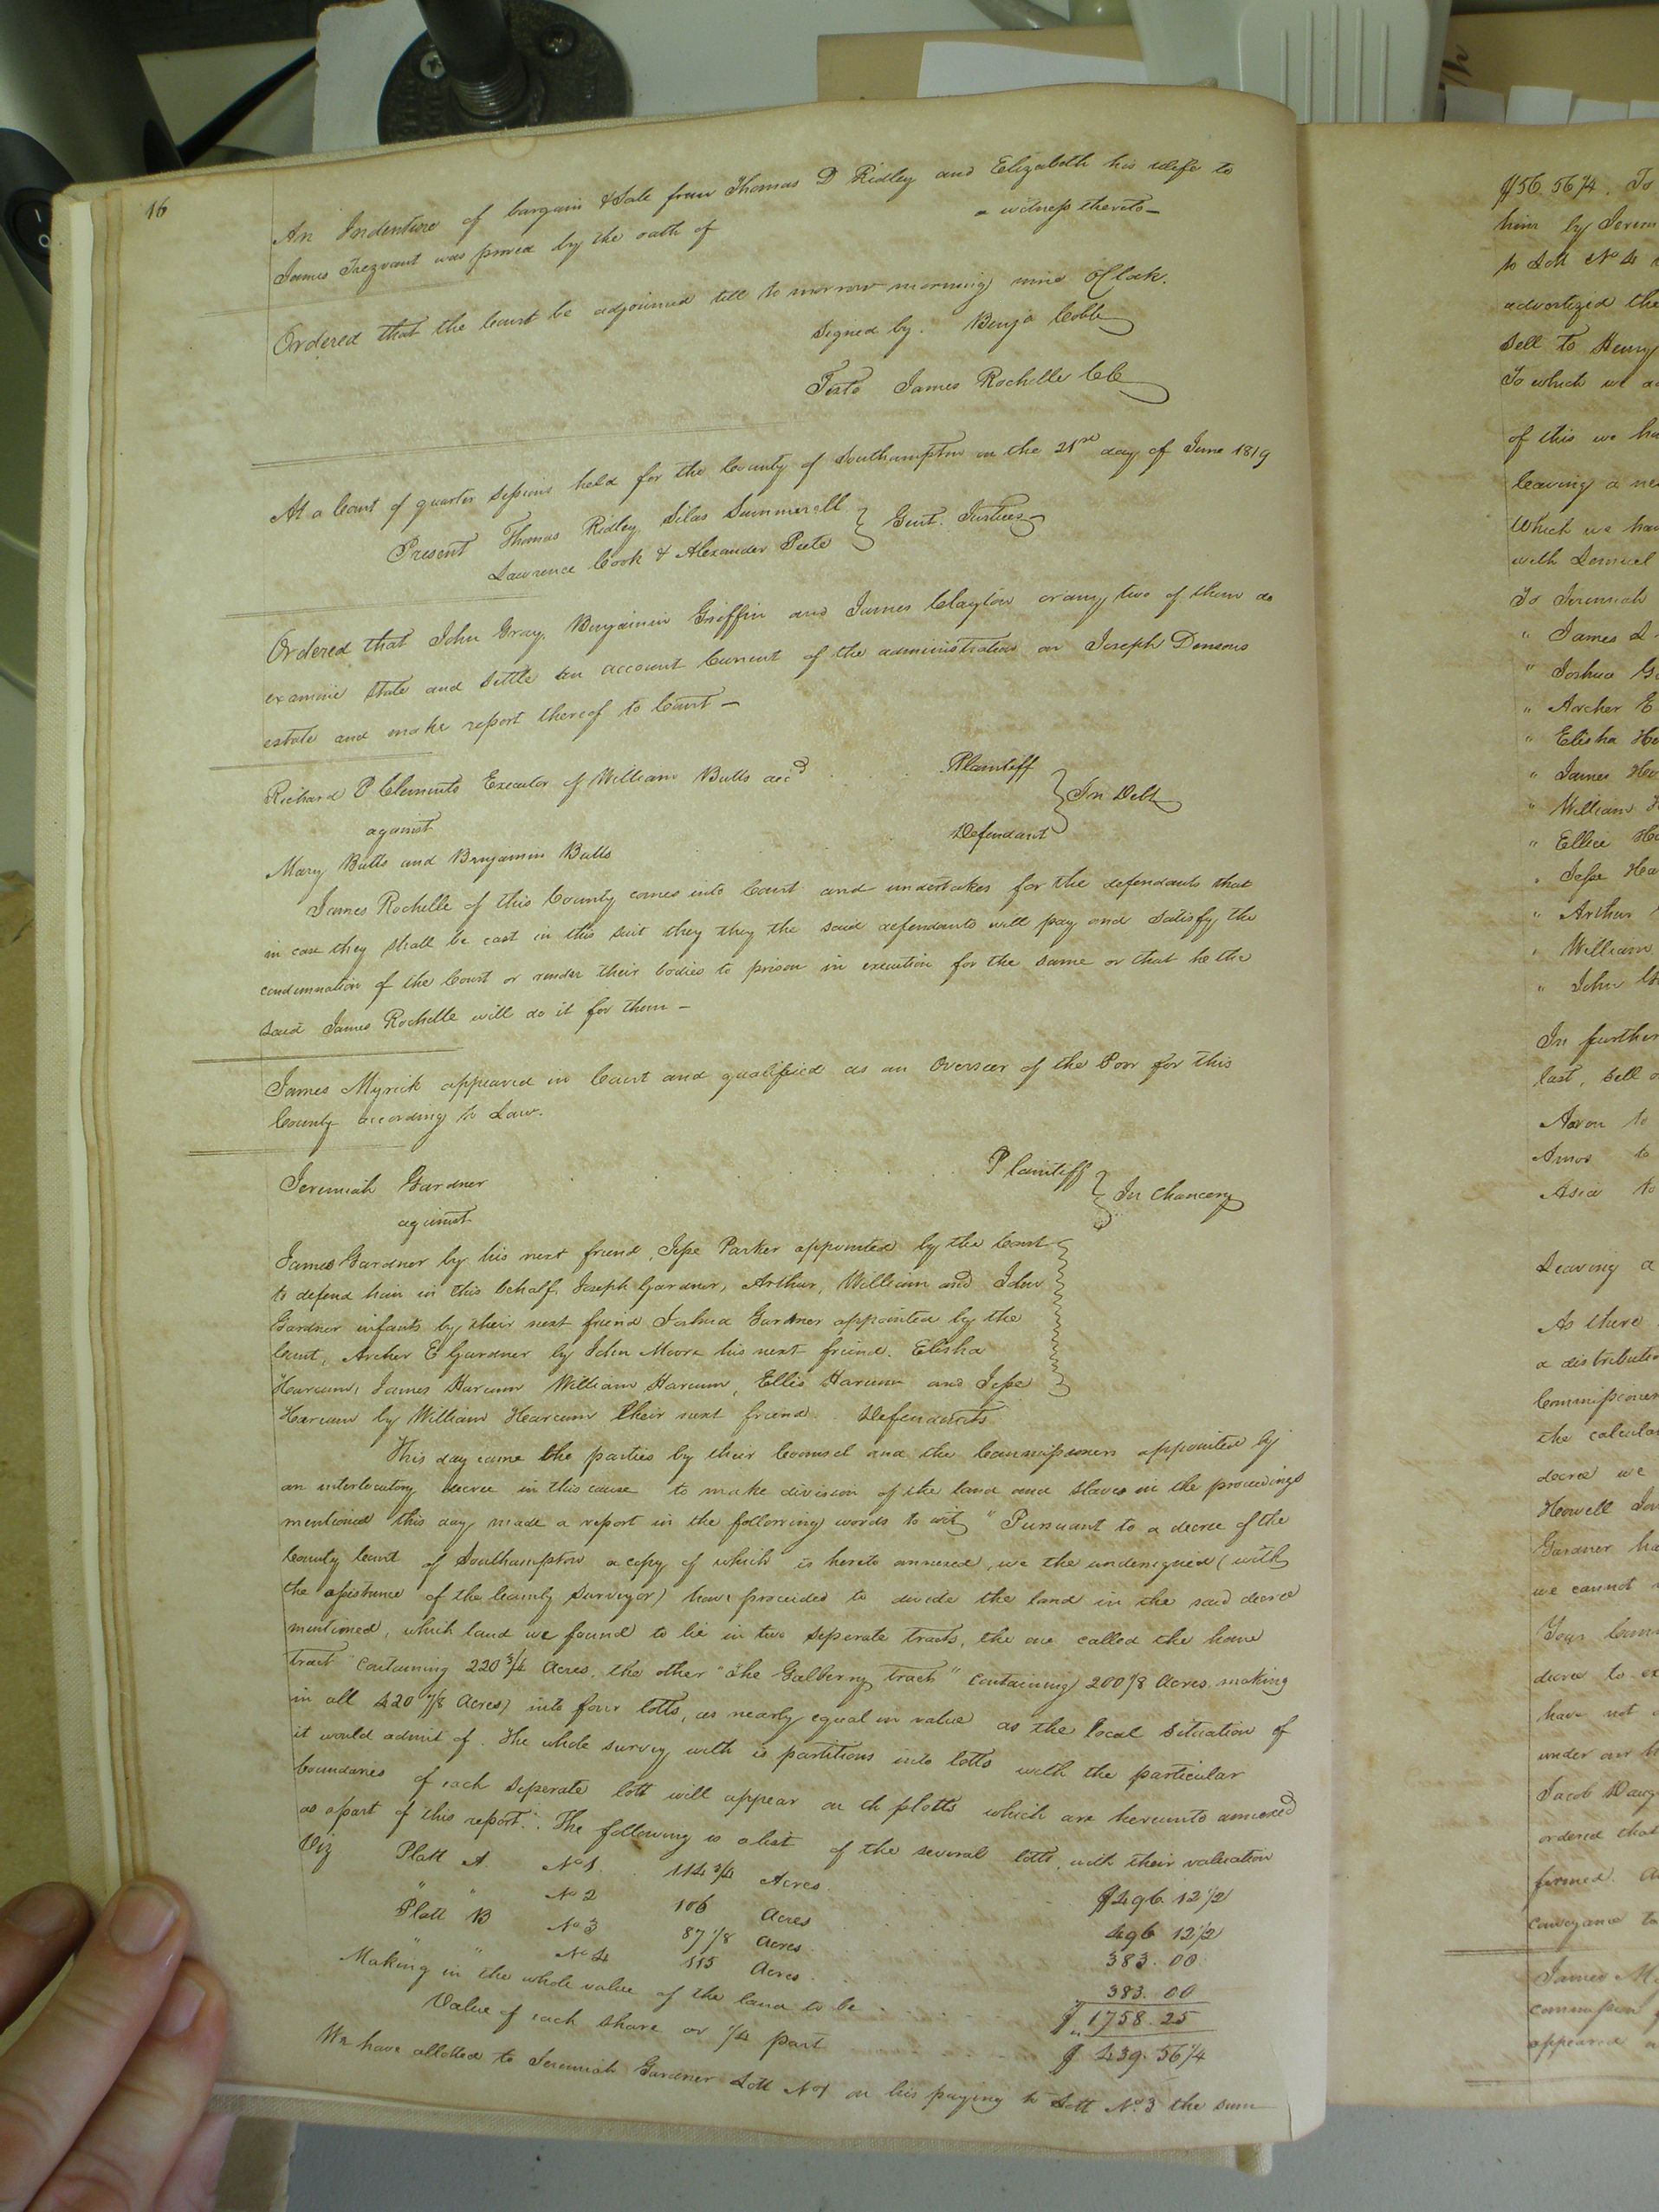 16
An Indenture of bargain & Sale from Thomas D Ridley and Elizabeth his wife to
James Trezvant was proved by the oath of a witness thereto —
Ordered that the Court be adjourned till to morrow morning nine OClock.
Signed by. Benja Cobb
Teste James Rochelle CC
At a Court of quarter Sessions held for the County of Southampton on the 21st day of June 1819
Present Thomas Ridley, Silas Summerell
Lawrence Cook & Alexander Peete } Gent. Justices
Ordered that John Gray, Benjamin Griffin and James Clayton or any two of them do
examine state and settle an account Current of the administration on Joseph Densons
estate and make report thereof to Court —
Richard P Clements Executor of William Butts decd Plaintiff
against } In Debt
Mary Butts and Benjamin Butts Defendant
James Rochelle of this County comes into Court and undertakes for the defendants that
in case they shall be cast in this suit they they the said defendants will pay and satisfy the
condemnation of the Court or render their bodies to prison in execution for the same or that he the
said James Rochelle will do it for them —
James Myrick appeared in Court and qualified as an Overseer of the Poor for this
County according to Law.
Jeremiah Gardner Plaintiff
against } In Chancery
James Gardner by his next friend, Jesse Parker appointed by the Court
to defend him in this behalf, Joseph Gardner, Arthur, William and John
Gardner infants by their next friend Joshua Gardner appointed by the
Court, Archer E Gardner by John Moore his next friend. Elisha
Harcum, James Harcum William Harcum, Ellis Harcum and Jesse
Harcum by William Hearcum their next friend. Defendants
This day came the parties by their Counsel and the Commissioners appointed by
an interlocutory decree in this cause to make division of the land and slaves in the proceedings
mentioned this day made a report in the following words to wit, "Pursuant to a decree of the
County Court of Southampton a copy of which is hereto annexed, we the undersigned (with
the assistance of the County Surveyor) have proceeded to divide the land in the said decree
mentioned, which land we found to lie in two seperate tracts, the one called the home
tract" Containing 220 3/4 Acres, the other "the Galberry tract" Containing 200 1/8 Acres making
in all 420 7/8 Acres) into four lotts, as nearly equal in value as the local situation of
it would admit of. The whole survey with is partitions into lotts with the particular
boundaries of each seperate lott will appear on ch plotts which are hereunto annexed
as apart of this report. The following is a list of the several lotts, with their valuation
Viz Platt A. No 1. 114 3/4 Acres. $496. 12 1/2
" " No 2 106 Acres 496 12 1/2
Platt B No 3 87 1/8 Acres. 383. 00
" " No 4 115 Acres. 383. 00
Making in the whole value of the land to be $ 1758. 25
Value of each share or 1/4 part $ 439. 56 1/4
We have allotted to Jeremiah Gardner Lott No 1 on his paying to Lott No. 3 the sum
$56 56 1/4. To
him by Jerem
to Lott No 4
advertized the
Sell To Henry
To which we
of this we ha
leaving a ne
Which we hav
with Lemuel
To Jeremiah
" James
" Joshua G
" Archer E
" Elisha H
" James Har
" William H
" Ellice Ha
" Jesse Ha
" Arthur
" William
" John G
In further
last, sell
Aaron to
Amos to
Asia to
Leaving a
As there
a distributi
Commissioner
the calcula
decree we
Howell
Gardner ha
we cannot
Your Comm
decree to ex
have not
under our h
Jacob
ordered that
firmed.
conveyance to
James M
commission
appeared